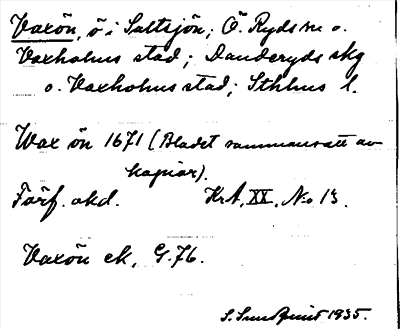 Vaxön, ö i Saltsjön; Ö. Ryds sn o.
Vaxholms stad; Danderyds skg
o. Vaxholms stad; Sthlms l.
Wax ön 1671 (Bladet sammansatt av
kopior).
Förf. okd. KrA, XX, No 13.
Vaxön ek, G.76.
S. Sundquist 1935.